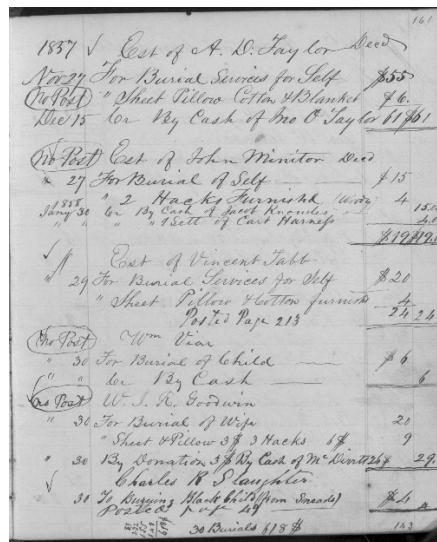 161
1857 Est of A. D. Taylor Decd
Nov 27 For Burial Services for Self $55
(No Post) " Sheet Pillow Cotton & Blanket $6.
Dec 15 Cr By Cash of Jno O Taylor 61 $61
(No Post) Est of John Minitor Decd
" 27 For Burial of Self $15
" 2 Hacks Furnished 4
1858 Jany 30 Cr By Cash of Jacob Knowles 15.00
" " " " 1 Sett of Cart Harness 4.00
$19 $19.00
Est of Vincent Tabb
" 29 For Burial Services for Self $20
" Sheet Pillow & Cotton furnish 4
Posted Page 213 24 24
(No Post) Wm Viar
" 30 For Burial of Child $6
" " Cr By Cash 6
(No Post) W. S. R. Goodwin
" 30 For Burial of Wife 20
" Sheet & Pillow 3$ 3 Hacks 6$ 9
" 30 By Donation 3$ By Cash of Mr Devitt 26$ 29.
Charles R Slaughter
30 To Burying Black Child (from Sneads) $4
Posted page 49
30 Burials 618$
143